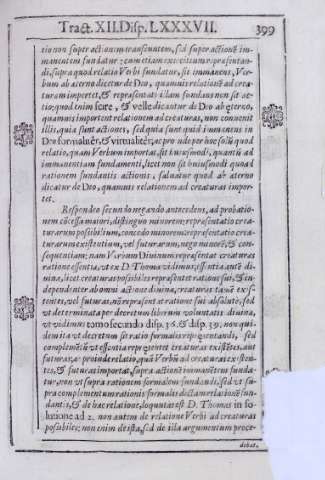 Tract. XII. Disp. LXXXVII. 399
tio non super actionem transeuntem, sed super actionẽ im-
manentem fundatur: cum etiam exercitium repræsentan-
di, supra quod relatio Verbi fundatur, sit immanens, Ver-
bum ab æterno dicitur de Deo, quamuis relationẽ ad crea-
turam importet, & repræsentatiã illam fundans non sit ac-
tio; quod enim scire, & velle dicantur de Deo ab æterno,
quamuis importent relationem ad creaturas, non conuenit
illis, quia sunt actiones, sed quia sunt quid immanens in
Deo formaliter, & virtualiter; ac pro inde per hoc solũ quod
relatio, quam Verbum importat, sit huiusmodi, quantũ ad
immanentiam fundamenti, licet non sit huiusmodi quoad
rationem fundantis actionis, saluatur quod ab æterno
dicatur de Deo, quamuis relationem ad creaturas impor-
tet.
Respondeo secundo negando antecedens, ad probatio-
nem cõcessa maiori, distinguo minorem; repræsentatio crea-
turarum possibilium, concedo minorem; repræsentatio crea-
turarum existentium, vel futurarum, nego minorẽ, & con-
sequentiam; nam Verbum Diuinum repræsentat creaturas
ratione essentiæ, vt ex D. Thoma vidimus; essentia autẽ di-
uina, licet creaturas possibiles repræsentet ratione sui, & in-
dependenter ab omni actione diuina, creaturas tamẽ exis-
tentes, vel futuras, nõ repræsentat ratione sui absolutè, sed
vt determinata per decretum liberum voluntatis diuinæ,
vt vidimus tomo secundo disp. 36. & disp. 39. non qui-
dem ita vt decretum sit ratio formalis repræsentandi, sed
complementũ vt essentia repræsentet creaturas existẽtes, aut
futuras; ac proinde relatio, quã Verbũ ad creaturas existen-
tes, & futuras importat, supra actionẽ immanentem funda-
tur, non vt supra rationem formalem fundandi, sed vt su-
pra complementum rationis formalis dictam relationẽ fun-
dantis, & de hac relatione, loquutus est D. Thomas in so-
lutione ad 2. non autem de relatione Verbi ad creaturas
possibiles; non enim de ista, sed de illa argumentum proce-
debat.